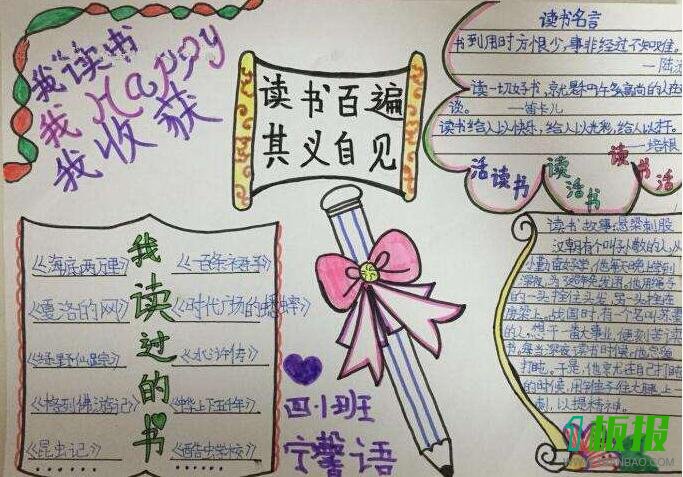 我读书
我 Happy
我收获
读书百遍
其义自见
读书名言
书到用时方恨少,事非经过不知难。
—陆
读一切好书,就是和许多高尚的人在
谈。 —笛卡儿
读书给人以快乐,给人以光彩,给人以才干。
—培根
活读书
读活书
读书活
我读过的书
《海底两万里》
《夏洛的网》
《绿野仙踪》
《格列佛游记》
《昆虫记》
《时代广场的蟋蟀》
《水浒传》
《中华上下五千年》
《酷虫学校》
四小班
宁馨语
读书故事:悬梁刺股
汉朝有个叫孙敬的人,从
小勤奋好学,他每天晚上学到
深夜,为了避免发困,他用绳子
的一头拴住头发,另一头拴在
房梁上。战国时,有一个名叫苏秦
的人,想干一番大事业,便刻苦读
书,每当深夜读书时候,他总想
打盹。于是,他就在自己打盹
的时候,用锥子往大腿上一
刺,以提精神。
板报